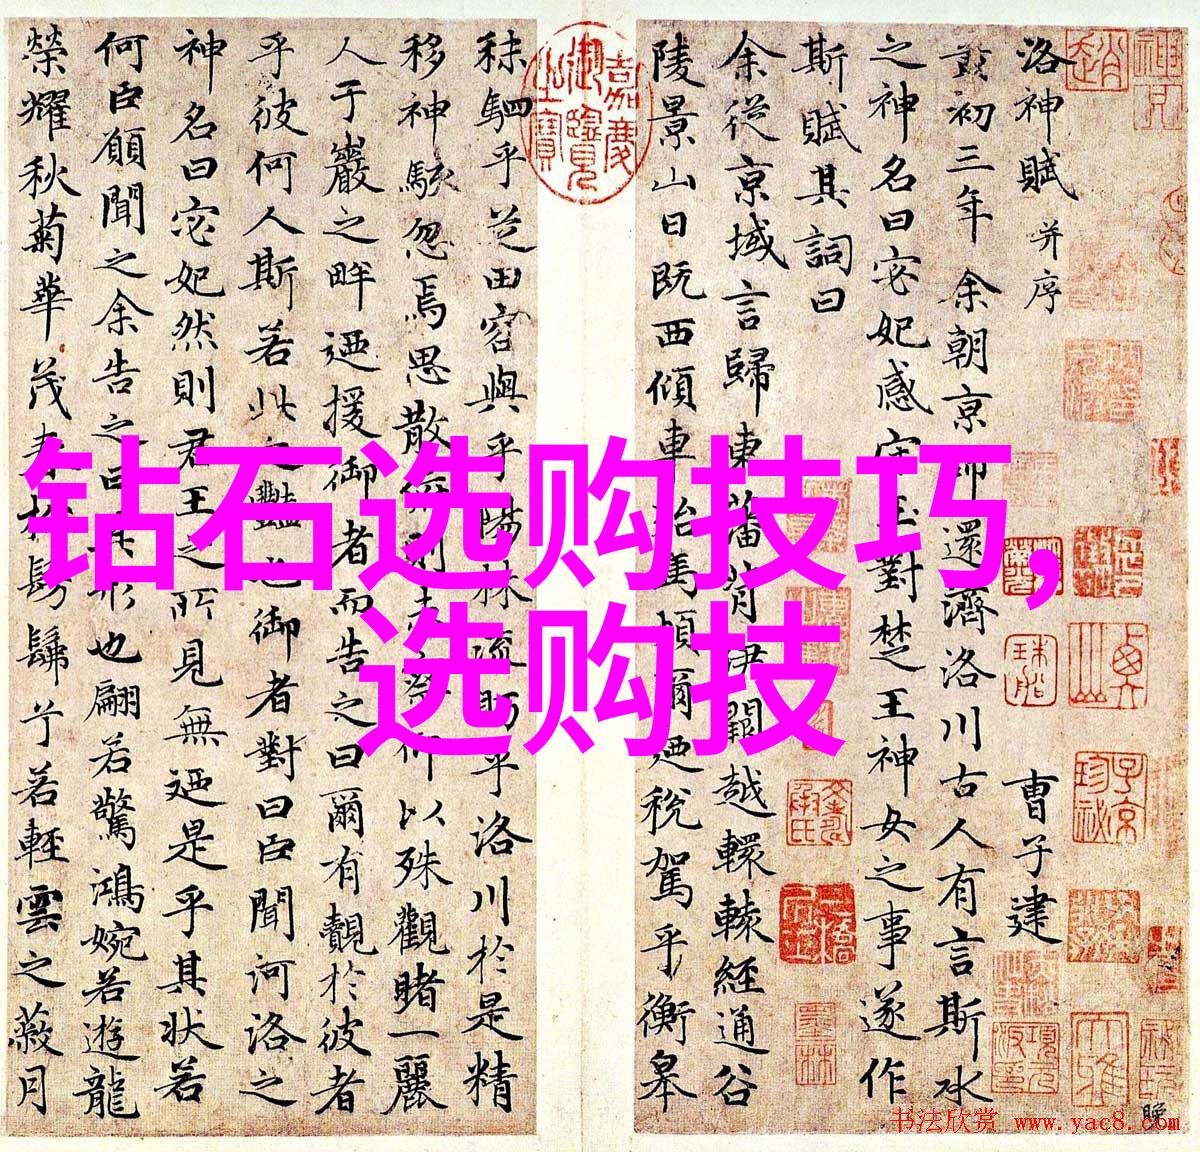 洛神賦 并序
曹子建
黃初三年余朝京師還濟洛川古人有言斯水
之神名曰宓妃感宋玉對楚王神女之事遂作
斯賦其詞曰
余從京域言歸東藩背伊闕越轘轅經通谷
陵景山日既西傾車殆馬煩爾迺稅駕乎衡皋
秣駟乎芝田容與乎陽林流眄乎洛川於是精
移神駭忽焉思散俯則未察仰以殊觀睹一麗
人于巖之畔迺援御者而告之曰爾有覿於彼者
乎彼何人斯若此之豔也御者對曰臣聞河洛之
神名曰宓妃然則君王之所見無迺是乎其狀若
何臣願聞之余告之曰其形也翩若驚鴻婉若遊龍
榮耀秋菊華茂春松髣髴兮若輕雲之蔽月
嘉慶御覽之寶
钻石选购技巧,
选购技
书法欣赏 www.yac8.com